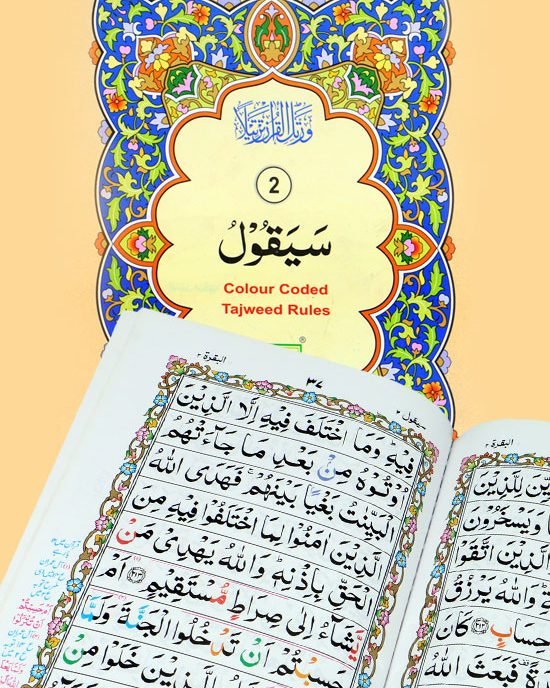 وَرَتِّلِ الْقُرْاٰنَ تَرْتِيْلًا
2
سَيَقُوْلُ
Colour Coded
Tajweed Rules
®
البقرة ٢
٣٧
سيقول ٢
فِيْهِ وَمَا اخْتَلَفَ فِيْهِ اِلَّا الَّذِيْنَ
اُوْتُوْهُ مِنْۢ بَعْدِ مَا جَآءَتْهُمُ
الْبَيِّنٰتُ بَغْيًۢا بَيْنَهُمْ ۚ فَهَدَى اللّٰهُ
الَّذِيْنَ اٰمَنُوْا لِمَا اخْتَلَفُوْا فِيْهِ مِنَ
الْحَقِّ بِاِذْنِهٖ ؕ وَاللّٰهُ يَهْدِىْ مَنْ
يَّشَآءُ اِلٰى صِرَاطٍ مُّسْتَقِيْمٍ ﴿٢١٣﴾ اَمْ
حَسِبْتُمْ اَنْ تَدْخُلُوا الْجَنَّةَ وَلَمَّا
الَّذِيْنَ خَلَوْا مِنْ
البقرة ٢
لِلَّذِيْنَ
وَيَسْخَرُوْنَ
الَّذِيْنَ اتَّقَوْا
وَاللّٰهُ يَرْزُقُ
حِسَابٍ ﴿٢١٢﴾ كَانَ
فَبَعَثَ اللّٰهُ